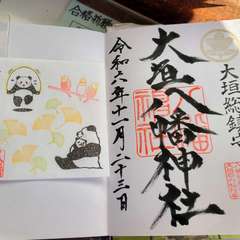 大垣総鎮守
大垣八幡神社
令和六年十一月二十三日
合格祈願